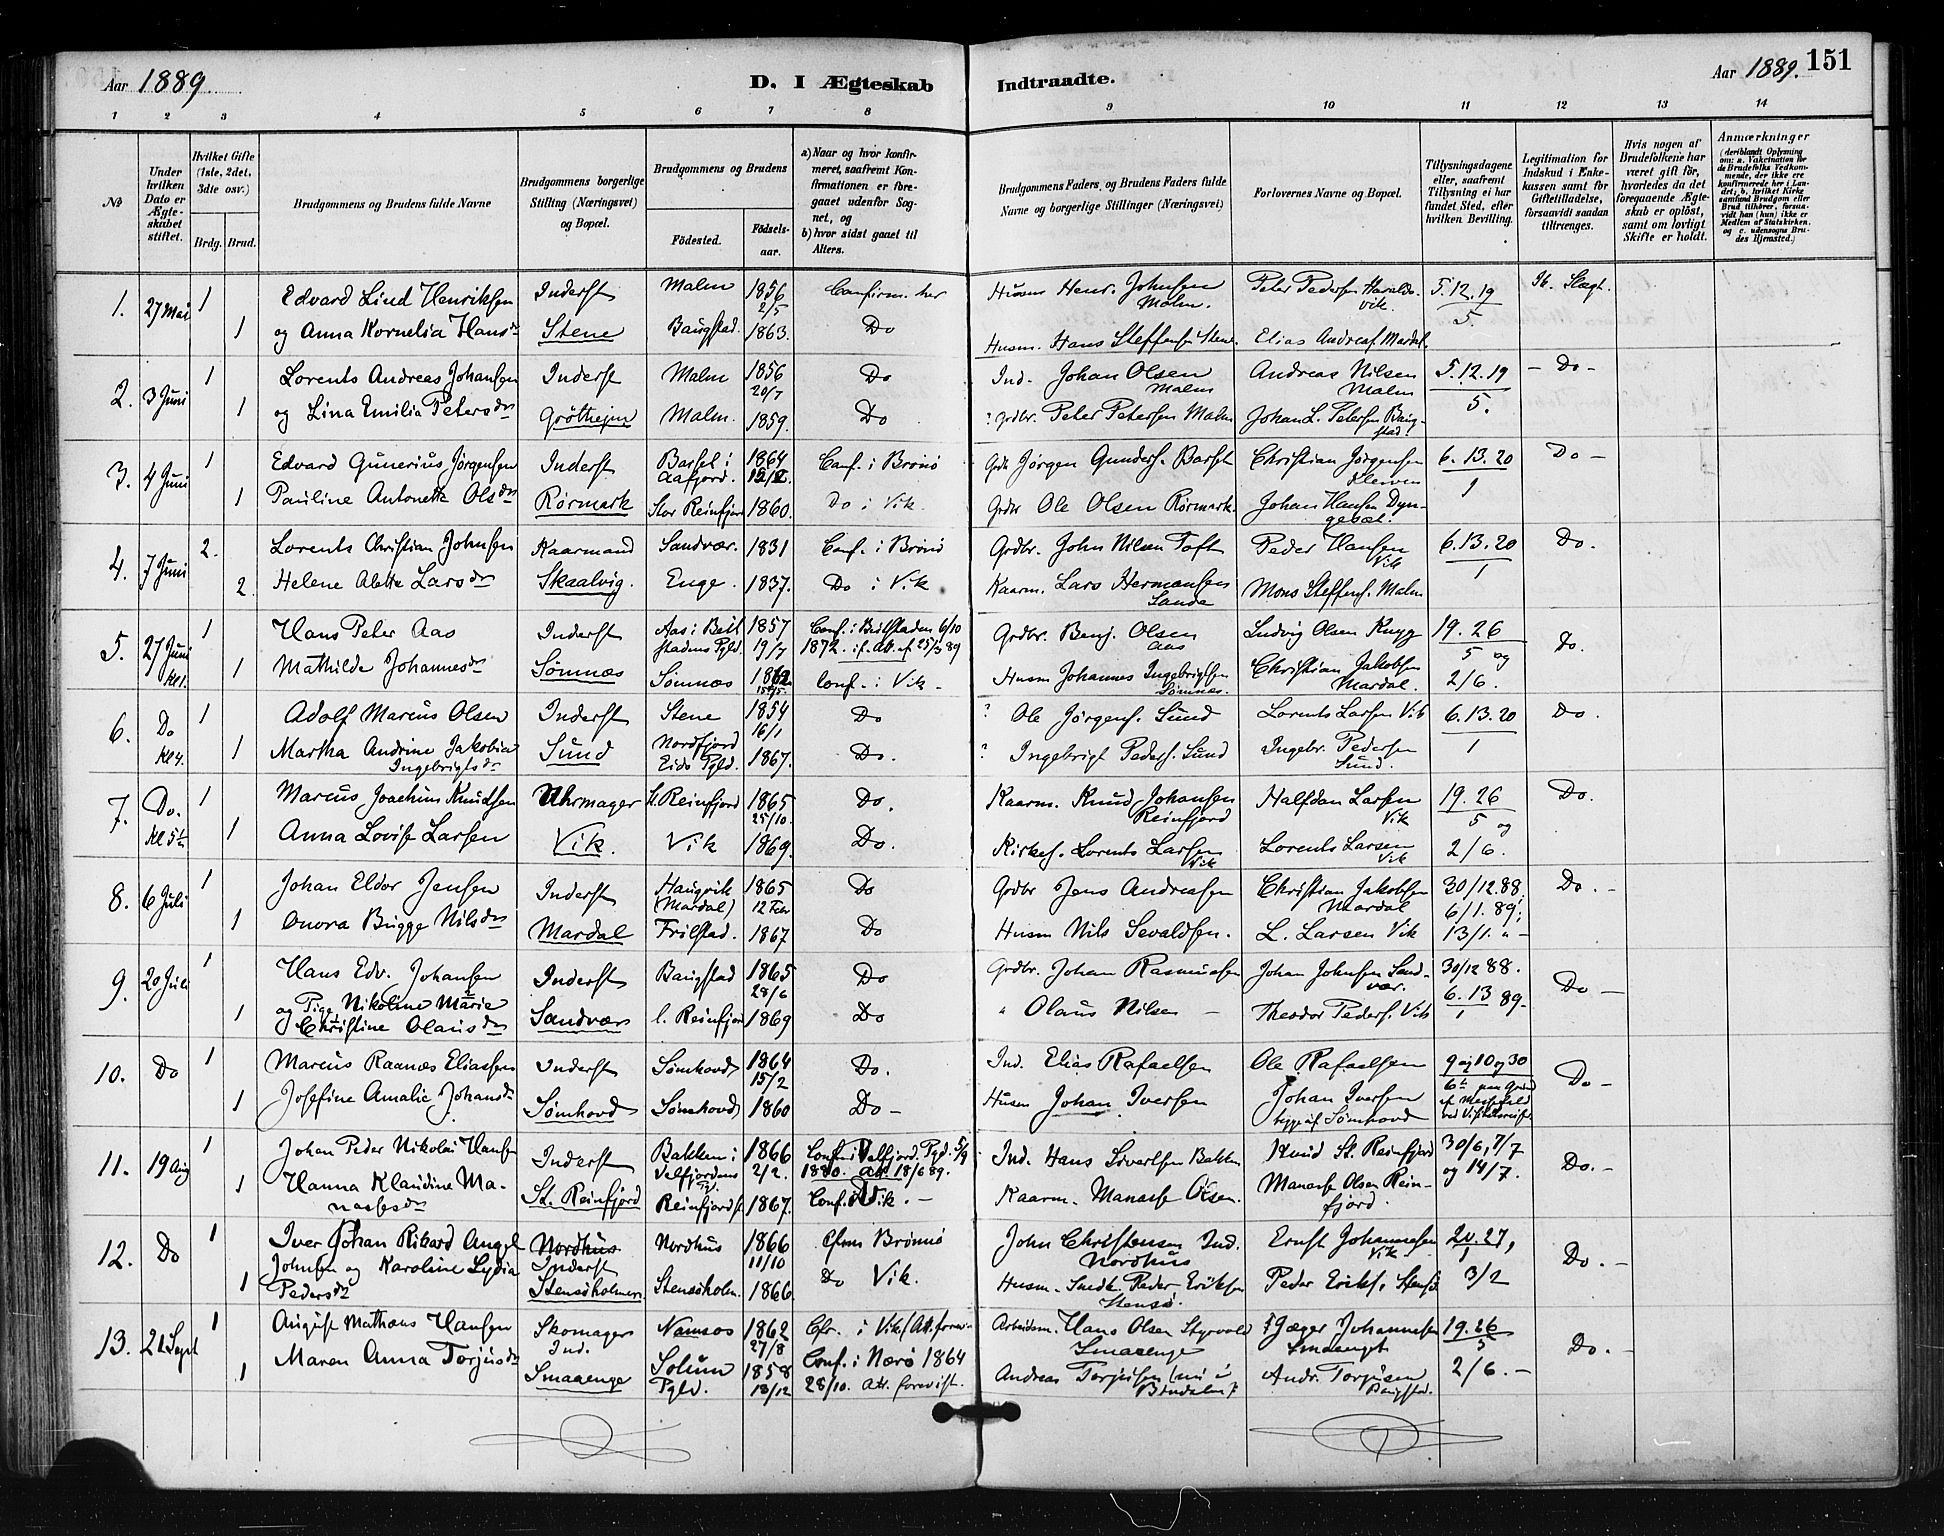 Aar 1889
D. I Ægteskab
Indtraadte.
Aar 1889. 151
1 2 3 4 5 6 7 8 9 10 11 12 13 14
No
Under hvilken Dato er Ægteskabet stiftet.
Hvilket Gifte (1ste, 2det, 3die osv.)
Brdg. Brud.
Brudgommens og Brudens fulde Navne
Brudgommens borgerlige Stilling (Næringsvei) og Bopæl.
Brudgommens og Brudens
Födested.
Födselsaar.
a) Naar og hvor konfirmeret, saafremt Konfirmationen er foregaaet udenfor Sognet, og
b) hvor sidst gaaet til Alters.
Brudgommens Faders, og Brudens Faders fulde Navne og borgerlige Stillinger (Næringsvei)
Forlovernes Navne og Bopæl.
Tillysningsdagene eller, saafremt Tillysning ei har fundet Sted, efter hvilken Bevilling.
Legitimation for Indskud i Enkekassen samt for Giftetilladelse, forsaavidt saadan tiltrænges.
Hvis nogen af Brudefolkene har været gift för, hvorledes da det foregaaende Ægteskab er oplöst, samt om lovligt Skifte er holdt.
Anmærkninger (deriblandt Oplysning om: a. Vakcination for de Brudefolks Vedkommende, der ikke ere konfirmerede her i Landet; b. hvilket Kirkesamfund Brudgom eller Brud tilhörer, forsaavidt han (hun) ikke er Medlem af Statskirken, og c. udensogns Brudes Hjemsted.)
1. 27 Mai 1 Edvard Lind Henriksen Inderst Malm 1856 2/5 Confirm. her Husm Henr. Johnsen Malm. Peter Pedersen Haraldsvik. 5.12.19/5. Slægt.
1 og Anna Kornelia Hansdr Stene Baugstad. 1863. Do Husm. Hans Steffens Stene. Elias Andreas. Mardal.
2. 3 Juni 1 Lorents Andreas Johansen Inderst Malm 1856 20/7 Do Ind. Johan Olsen Malm Andreas Nilsen Malm 5.12.19/5. - Do -
1 og Lina Emilia Petersdr Gröthejm Malm. 1859. Do Grdbr. Peter Petersen Malm Johan L. Petersen Baugstad.
3. 4 Juni 1 Edvard Gunerius Jörgensen Inderst Barsel i Aafjord. 1864 Conf. i Brönö Jörgen Gunders. Barset Christian Jörgensen Kleiven 6.13.20/1 Do -
1 Pauline Antonette Olsdr Rörmark Stor Reinfjord 1860. Do i Vik. Grdbr Ole Olsen Rörmark. Johan Hansen
4. 7 Juni 2. Lorents Christian Johnsen Kaarmand Sandvær. 1831 Conf. i Brönö Grdbr. John Nilsen Toft Peder Hansen Vik 6.13.20/1 Do.
2. Helene Alette Larsdr Skaalvig. Enge. 1837. Do i Vik Kaarm. Lars Hermansen Sande Mons Steffens. Malm
5. 27 Juni Kl 1. 1 Hans Peter Aas Inderst Aas i Beitstadens Pgld. 1857 19/7 Conf. i Beitstaden 6/10 1872. Grdbr. Benj. Olsen Aas Ludvig Olsen 19.26/5 og 2/6. Do.
1 Mathilde Johannesdr Sömnæs Sömnæs Conf. i Vik - Husm Johannes Ingebrigtsen Sömnæs. Christian Jakobsen Mardal.
6. Do Kl 4. 1 Adolf Marcus Olsen Inderst Stene 1854 16/1 Do ? Ole Jörgens. Sund Lorents Larsen Vik 6.13.20/1 Do.
1 Martha Andrine Jakobia Ingebrigtsdr Sund Nordfjord Eids Pgld. 1867. Do. ? Ingebrigt Peders. Sund Ingebr. Pedersen Sund.
7. Do. 1 Marcus Joachim Knudsen Uhrmager St. Reinfjord 1865 25/10. Do. Kaarm. Knud Johansen Reinfjord Halfdan Larsen Vik 19.26/5 og 2/6. Do.
1 Anna Lovise Larsen Vik. Vik 1869. Do. Kirkes. Lorents Larsen Vik Lorents Larsen Vik
8. 6 Juli 1 Johan Eldor Jensen Inderst Haugvik (Mardal) 1865 12 Febr Do Grdbr Jens Andreasen Christian Jakobsen Mardal 30/12 88. 6/1. 89; 13/1. " - Do. -
1 Onora Bugge Nilsdr Mardal Frilstad. 1867 Do Husm Nils Sevaldsen. L. Larsen Vik
9. 20 Juli 1 Hans Edv. Johansen Inderst Baugstad 1865 28/6 Do Grdbr. Johan Rasmussen Johan Johnsen Sandvær. 30/12 88. 6.13/1 89. Do -
1 og Pige Nikoline Marie Christine Olausdr Sandvær l. Reinfjord 1869 Do " Olaus Nilsen - Theodor Peders. Vik
10. Do 1 Marcus Raanæs Eliassen Inderst Sömhovd 1864 15/2 Do. Ind. Elias Rafaelsen Ole Rafaelsen 9 og 10 og 30 Do -
1 Josefine Amalie Johansdr Sömhovd Sömhovd 1860 Do - Husm Johan Iversen Johan Iversen Sömhovd
11. 19 Aug 1 Johan Peder Nikolai Hansen Inderst Bakken i Velfjordens 1866 2/2. Conf. i Velfjord. Pgd. 5/9 1880. Att. 18/6 89. Ind. Hans Sivertsen Bakken Knud St. Reinfjord 30/6, 7/7 og 14/7. Do. -
1 Hanna Klaudine Manassesdr St. Reinfjord Reinfjord St. 1867. Conf. i Vik. - Kaarm. Manasse Olsen. Manasse Olsen Reinfjord
12. Do 1 Iver Johan Rikard Angel Johnsen Nordhus Inderst Nordhus 1866 11/10 Cfrm Brönnö John Christensen Ind. Nordhus Ernst Johannesen Vik 20.27/1, 3/2 Do. -
1 og Karoline Lydia Pedersdr Stensöholmen Stensöholm. 1866. Do Vik. Husm. Smedk. Peder Eriksen Stensö. Peder Eriks. Stensö
13. 21 Sept 1 August Mathæus Hansen Skomager Ind. Namsos 1862 27/8 Cfr. i Vik Att. forev. Arbeidsm. Hans Olsen Styrvold Smaaenge Jæger Johannesen Smaaenget 19.26/5 2/6. - Do. -
1 Maren Anna Torjusdr Smaaenge Solum Pgld. 1858 18/12 Conf. i Nærö 1864 28/10. Att. forevist. Andreas Torjusen (nu i Bindalen) Andr. Torjusen Baugstad.